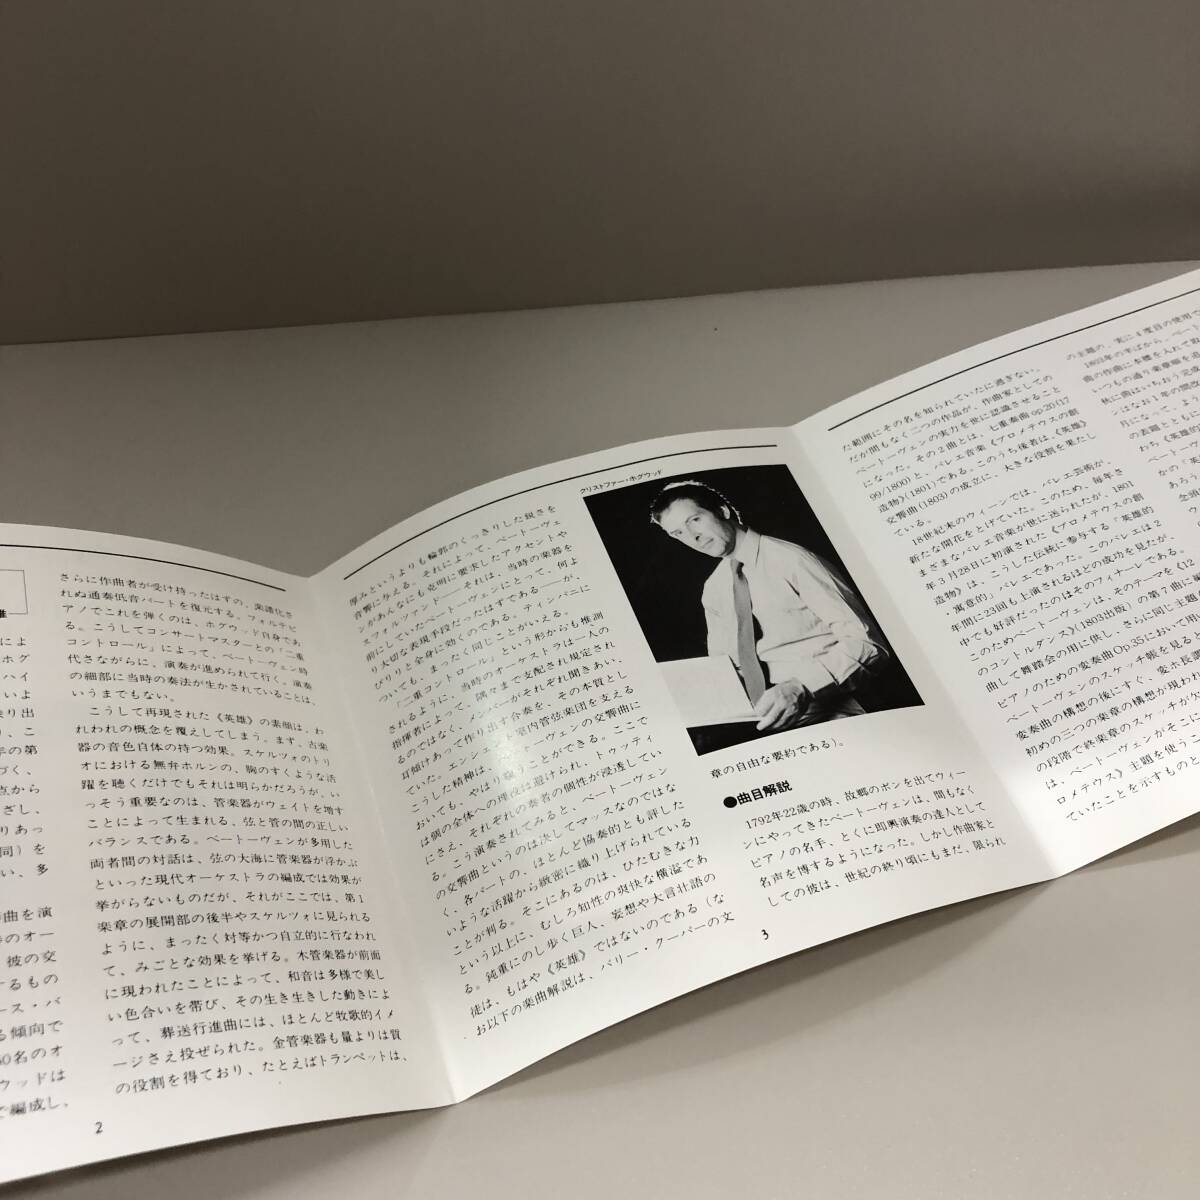 雄
によ
ホグ
ハイ
いよ
り出
り、こ
年の第
づく、
点から
ざし、
りあっ
同）を
い、多
曲を演
のオー
彼の交
するもの
ース・バ
る傾向で
60名のオ
ウッドは
で編成し、
さらに作曲者が受け持ったはずの、楽譜化さ
れぬ通奏低音パートを復元する。フォルテピ
アノでこれを弾くのは、ホグウッド自身であ
る。こうしてコンサートマスターとの「二重
コントロール」によって、ベートーヴェン時
代さながらに、演奏が進められて行く。演奏
の細部に当時の奏法が生かされていることは、
いうまでもない。
こうして再現された《英雄》の素顔は、わ
れわれの概念を覆えしてしまう。まず、古楽
器の音色自体の持つ効果。スケルツォのトリ
オにおける無弁ホルンの、胸のすくような活
躍を聴くだけでもそれは明らかだろうが、い
っそう重要なのは、管楽器がウェイトを増す
ことによって生まれる、弦と管の間の正しい
バランスである。ベートーヴェンが多用した
両者間の対話は、弦の大海に管楽器が浮かぶ
といった現代オーケストラの編成では効果が
挙がらないものだが、それがここでは、第1
楽章の展開部の後半やスケルツォに見られる
ように、まったく対等かつ自立的に行なわれ
て、みごとな効果を挙げる。木管楽器が前面
に現われたことによって、和音は多様で美し
い色合いを帯び、その生き生きした動きによ
って、葬送行進曲には、ほとんど牧歌的イメ
ージさえ投ぜられた。金管楽器も量よりは質
の役割を得ており、たとえばトランペットは、
2
厚みというよりも輪郭のくっきりした鋭さを
音響に与える。それによって、ベートーヴェ
ンがあんなにも克明に要求したアクセントや
スフォルツァンド――それは、当時の楽器を
前にしていたベートーヴェンにとって、何よ
り大切な表現手段だったはずである――が、
ぴりりと全身に効くのである。ティンパニに
ついても、まったく同じことがいえる。
「二重コントロール」という形からも推測
されるように、当時のオーケストラは一人の
指揮者によって、隅々まで支配され規定され
るのではなく、メンバーがそれぞれ聞きあい、
耳傾けあって作り出す合奏を、その本質とし
ていた。エンシェント室内管弦楽団を支える
こうした精神は、ベートーヴェンの交響曲に
おいても、やはり窺うことができる。ここで
は個の全体への埋没は避けられ、トゥッティ
にさえ、それぞれの奏者の個性が浸透してい
る。こう演奏されてみると、ベートーヴェン
の交響曲というのは決してマッスなのではな
く、各パートの、ほとんど協奏的とも評した
いような活躍から緻密に織り上げられている
ことが判る。そこにあるのは、ひたむきな力
という以上に、むしろ知性の爽快な横溢であ
る。鈍重にのし歩く巨人、妄想や大言壮語の
徒は、もはや《英雄》ではないのである（な
お以下の楽曲解説は、バリー・クーパーの文
クリストファー・ホグウッド
章の自由な要約である）。
●曲目解説
1792年22歳の時、故郷のボンを出てウィー
ンにやってきたベートーヴェンは、間もなく
ピアノの名手、とくに即興演奏の達人として
名声を博するようになった。しかし作曲家と
しての彼は、世紀の終り頃にもまだ、限られ
3
た範囲にその名を知られていたに過ぎない。
だが間もなく二つの作品が、作曲家としての
ベートーヴェンの実力を世に認識させること
になった。その2曲とは、七重奏曲op.20(17
99/1800)と、バレエ音楽《プロメテウスの創
造物》(1801)である。このうち後者は、《英雄》
交響曲(1803)の成立に、大きな役割を果たし
ている。
18世紀末のウィーンでは、バレエ芸術が、
新たな開花をとげていた。このため、毎年さ
まざまなバレエ音楽が世に送られたが、1801
年3月28日に初演された《プロメテウスの創
造物》は、こうした伝統に参与する「英雄的
・寓意的」バレエであった。このバレエは2
年間に23回も上演されるほどの成功を見たが、
中でも好評だったのはそのフィナーレである。
このためベートーヴェンは、そのテーマを《12
のコントルダンス》(1803出版)の第7曲に
曲して舞踏会の用に供し、さらに同じ主題
ピアノのための変奏曲Op.35において用
ベートーヴェンのスケッチ帳を見る
変奏曲の構想の後にすぐ、変ホ長調
初めの三つの楽章の構想が現われ
の段階で終楽章のスケッチが
は、ベートーヴェンがそこ
ロメテウス》主題を使うこ
ていたことを示すものと
の主題の、実に4度目の使用で
1803年の半ばから、ベート
曲の作曲に本腰を入れて取
いつもの通り楽章順を追
秋に曲はいちおう完成
ンはなお1年の間改
月になって、よ
の表題ととも
わち《英雄的
ベートーヴ
かの「英
あろう
念頭
ウ